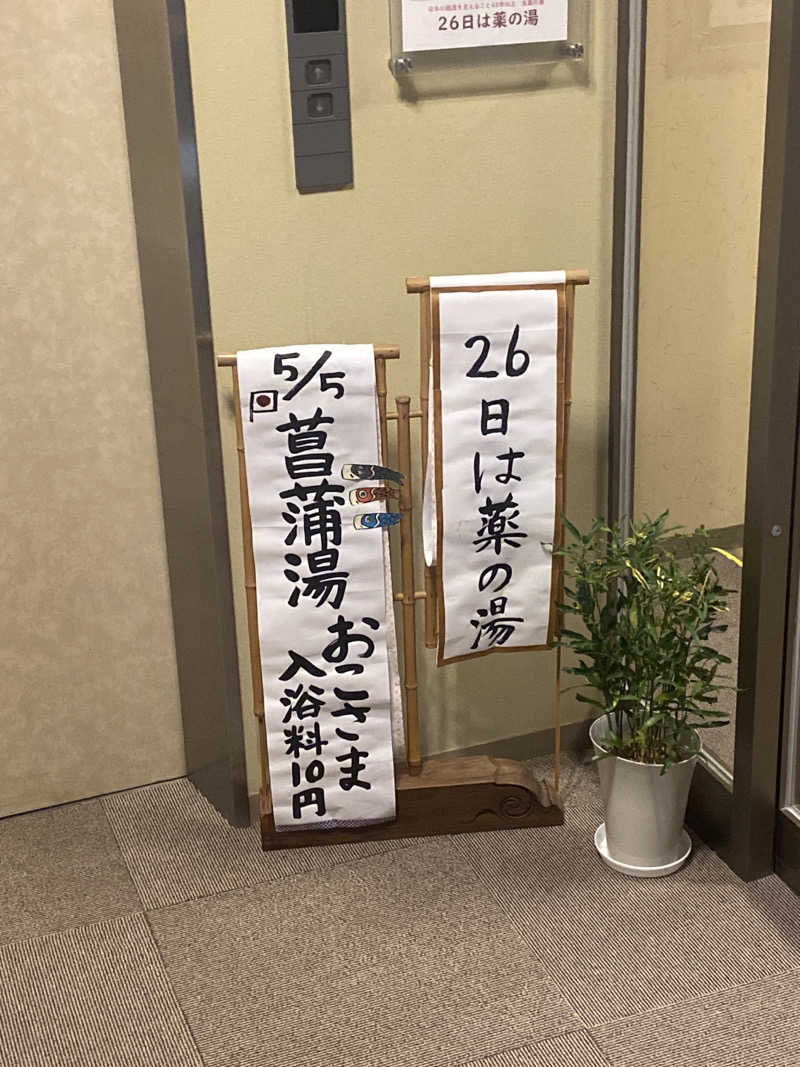 26日は薬の湯
5/5
菖蒲湯
おこさま
入浴料10円
26日は薬の湯